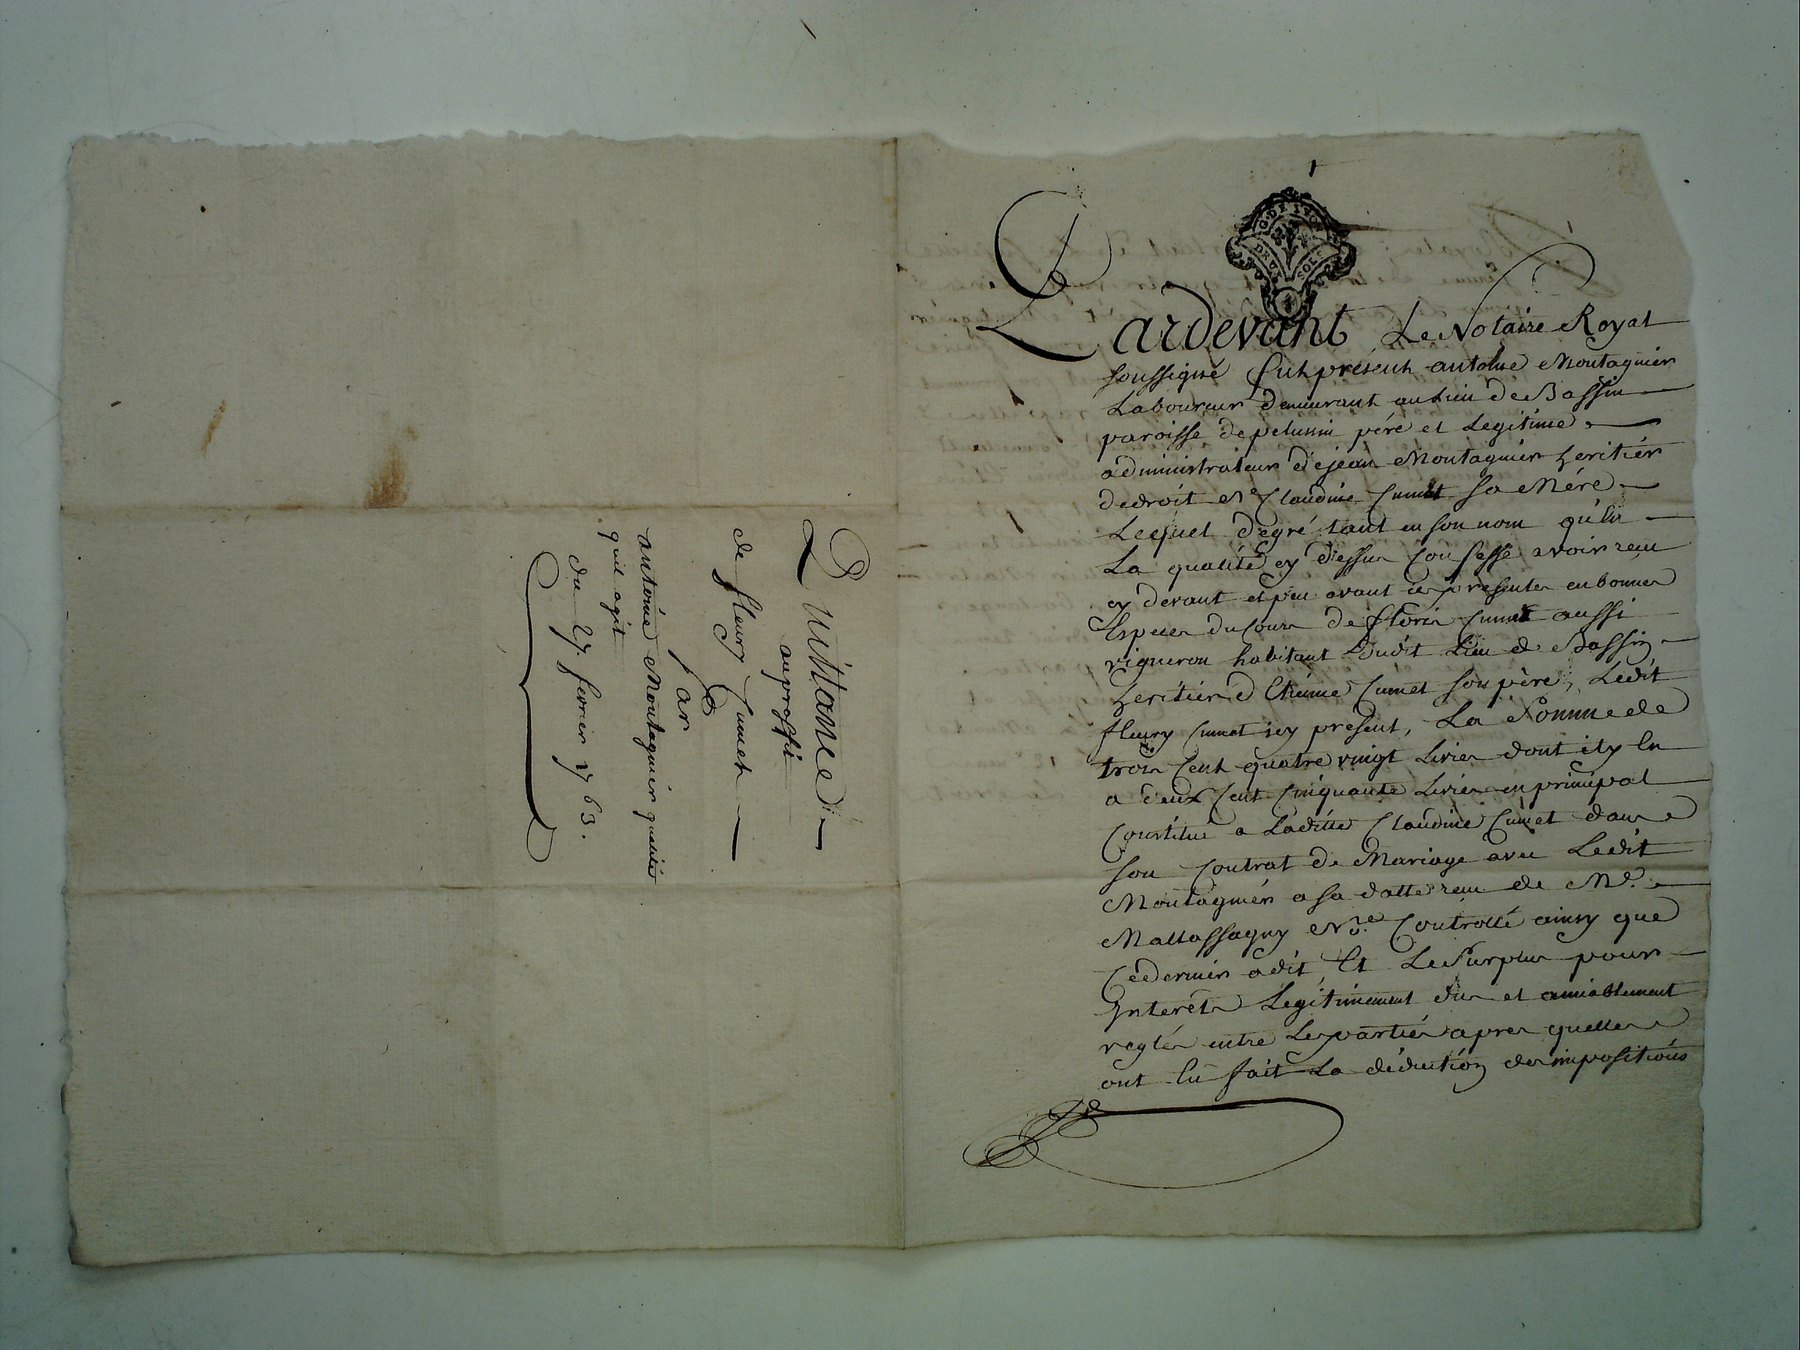 Quittance
au proffit
de fleury Cumet
par
antoine Montagnier qualité
quil agit
du 27 fevrier 1763.
G. DE LYON
DEUX SOLS
Pardevant Le Notaire Royal
soussigné fut présent antoine Montagnier
Laboureur demeurant au Lieu de Bassin
paroisse de pelussin péré et Legitime
administrateur de jean Montagnier heritier
de droit de Claudine Cumet sa Mére
Lequel de gré tant en son nom qu'en
La qualité cy dessus Confesse avoir reçu
cy devant et peu avant ces presentes en bonnes
Especes du Cours de floris Cumet aussi
vigneron habitant dudit Lieu de Bassin
heritier d'Etienne Cumet son père, Ledit
fleury Cumet icy present, La Somme de
trois Cent quatre vingt Livres dont il y en
a deux Cent Cinquante Livres en principal
Constitué a Laditte Claudine Cumet dans
son Contrat de Mariage avec Ledit
Montagnier a sa datte reçu de Me.
Mattassagny Nore. Controllé ainsy que
Ce dernier a dit, Et Le Surplus pour
Interéts Legitimement dus et amiablement
reglés entre Les parties apres quelles
ont eu fait La déduction des impositions